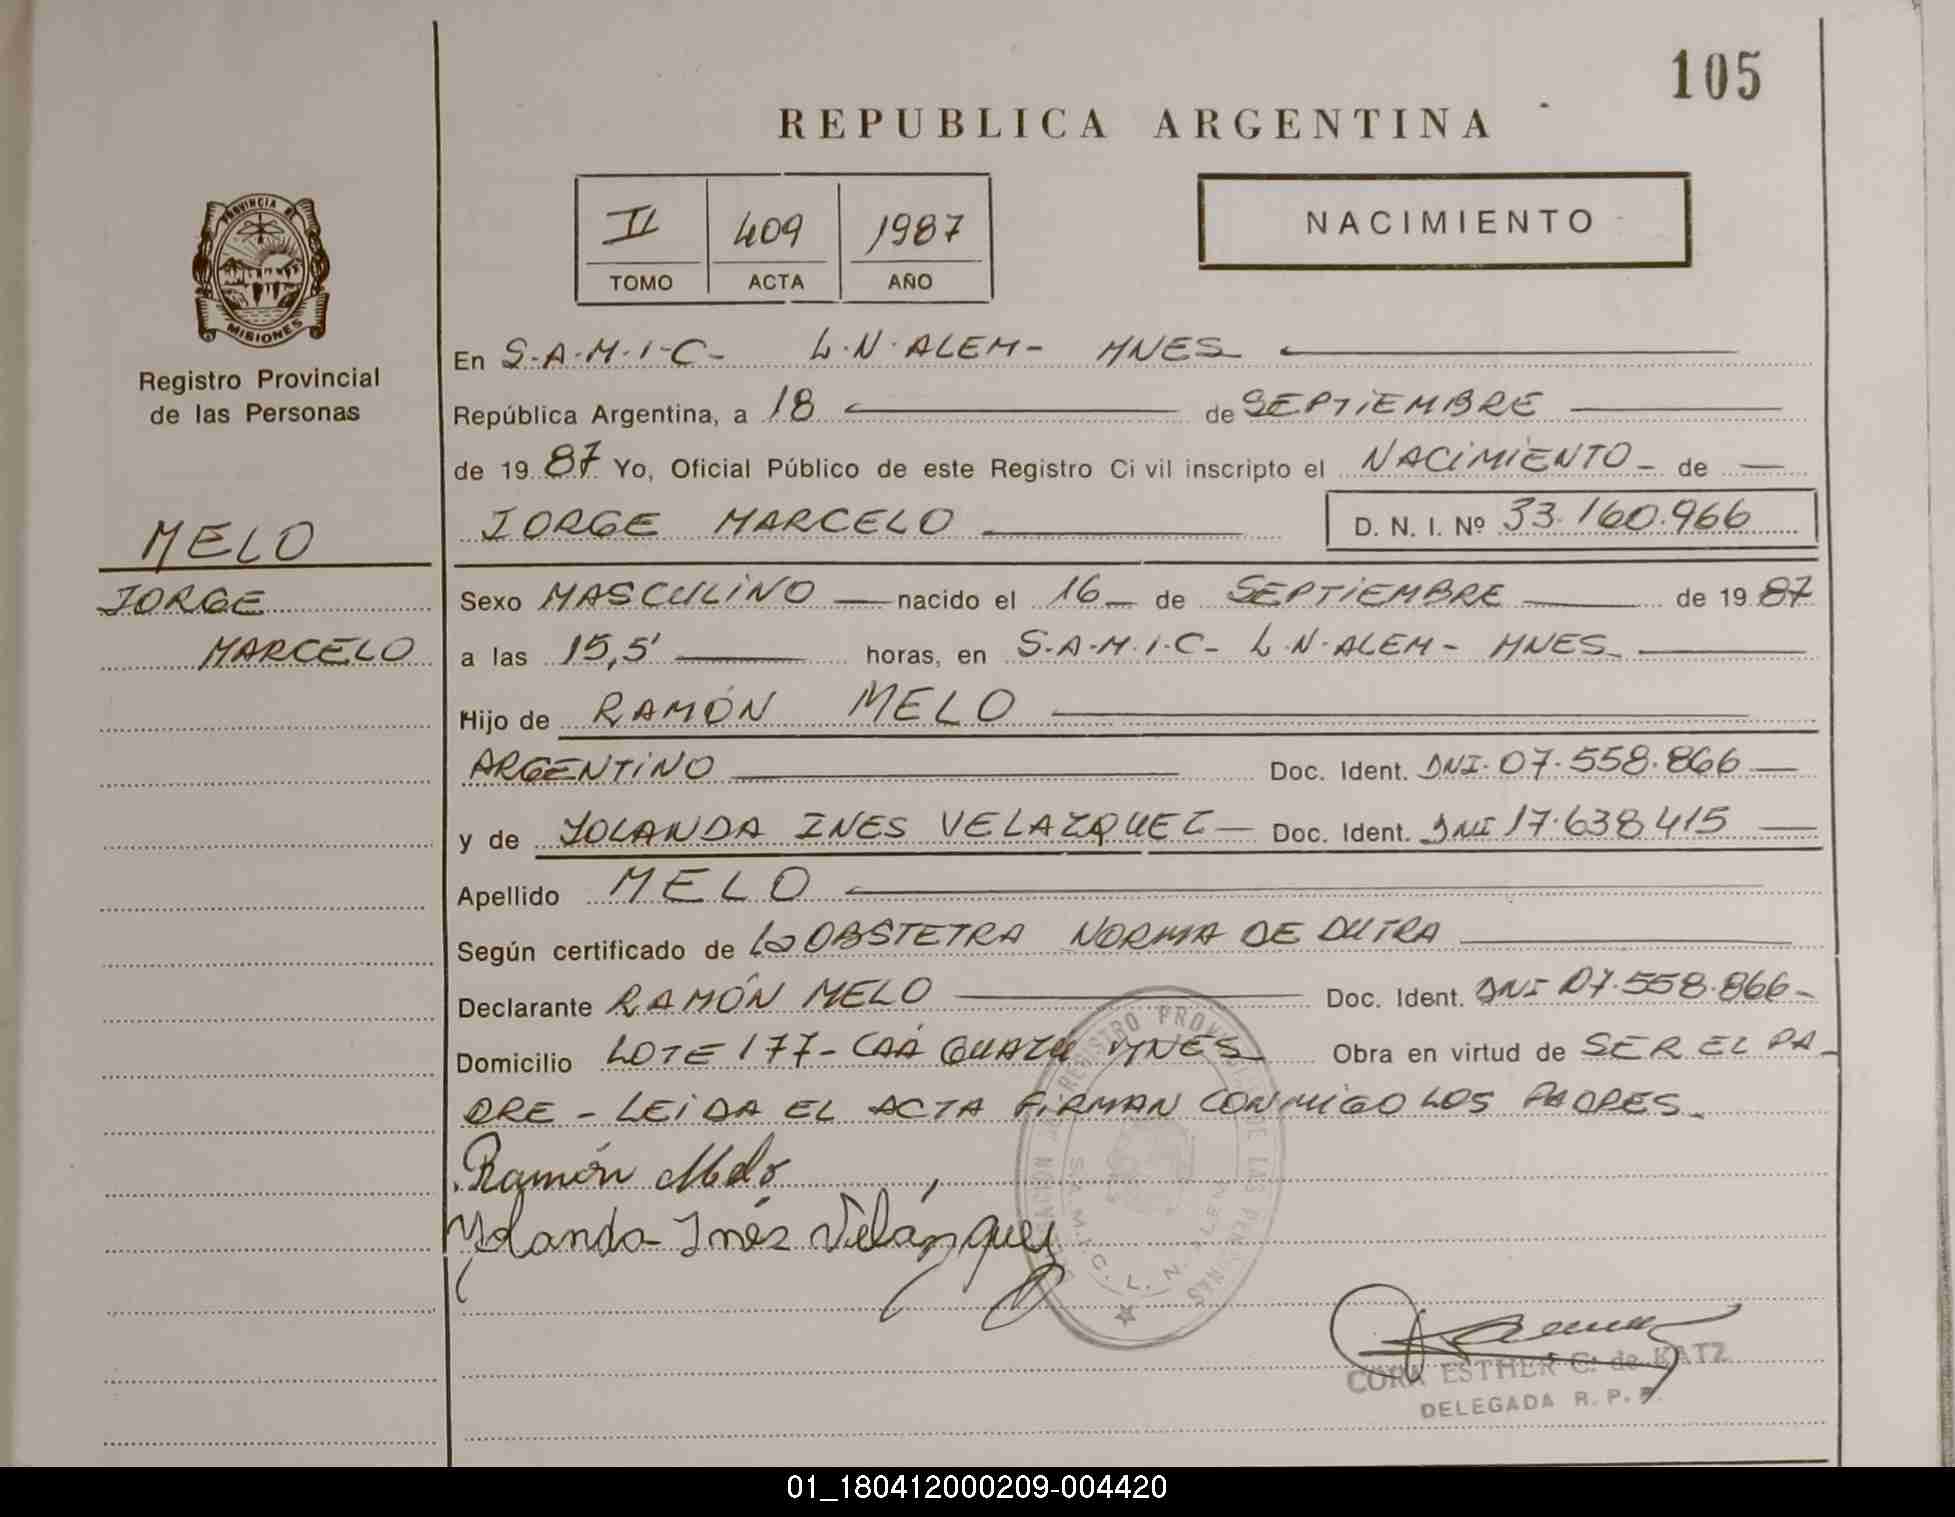 105
REPUBLICA ARGENTINA
II 409 1987
TOMO ACTA AÑO
NACIMIENTO
PROVINCIA DE
MISIONES
Registro Provincial
de las Personas
MELO
JORGE
MARCELO
En S.A.M.I.C- L.N.ALEM- MNES
República Argentina, a 18 de SEPTIEMBRE
de 19 87 Yo, Oficial Público de este Registro Ci vil inscripto el NACIMIENTO - de —
JORGE MARCELO D. N. I. Nº 33.160.966
Sexo MASCULINO — nacido el 16 - de SEPTIEMBRE de 19 87
a las 15,5' horas, en S.A.M.I.C- L.N.ALEM- MNES
Hijo de RAMÓN MELO
ARGENTINO Doc. Ident. DNI. 07.558.866 —
y de YOLANDA INES VELAZQUEZ — Doc. Ident. DNI 17.638.415 —
Apellido MELO
Según certificado de La OBSTETRA NORMA DE DUTRA
Declarante RAMÓN MELO Doc. Ident. DNI 07.558.866 -
Domicilio LOTE 177- CAÁ GUAZÚ MNES Obra en virtud de SER EL PA-
DRE - LEIDA EL ACTA FIRMAN CONMIGO LOS PADRES.
Ramón Melo
Yolanda Inés Velázquez
REGISTRO PROVINCIAL DE LAS PERSONAS
S.A.M.I.C. L.N. ALEM
CORA ESTHER C. de KATZ
DELEGADA R. P. P.
01_180412000209-004420